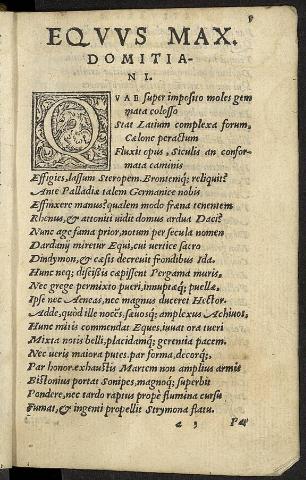 EQVVS MAX.
DOMITIA-
NI.
QVAE super imposito moles gem
mata colosso
Stat Latium complexa forum,
Cælone peractum
Fluxit opus, Siculis an confor-
mata caminis
Effigies, lassum Steropem, Brontemq; reliquit?
An te Palladiæ talem Germanice nobis
Effinxere manus? qualem modo fræna tenentem
Rhenus, & attoniti uidit domus ardua Daci?
Nunc age fama prior, notum per secula nomen
Dardany miretur Equi, cui uertice sacro
Dindymon, & cæsis decreuit frondibus Ida.
Hunc neq; discißis cæpissent Pergama muris,
Nec grege permixto pueri, innuptæq; puellæ,
Ipse nec Aeneas, nec magnus duceret Hector.
Adde, quòd ille nocēs, sæuosq; amplexus Achiuos,
Hunc mitis commendat Eques, iuuat ora tueri
Mixta notis belli, placidamq; gerentia pacem.
Nec ueris maiora putes. par forma, decorq;,
Par honor. exhaustis Martem non amplius armis
Bistonius portat Sonipes, magnoq; superbit
Pondere, nec tardo raptus prope flumina cursu
Fumat, & ingenti propellit Strymona flatu.
Par